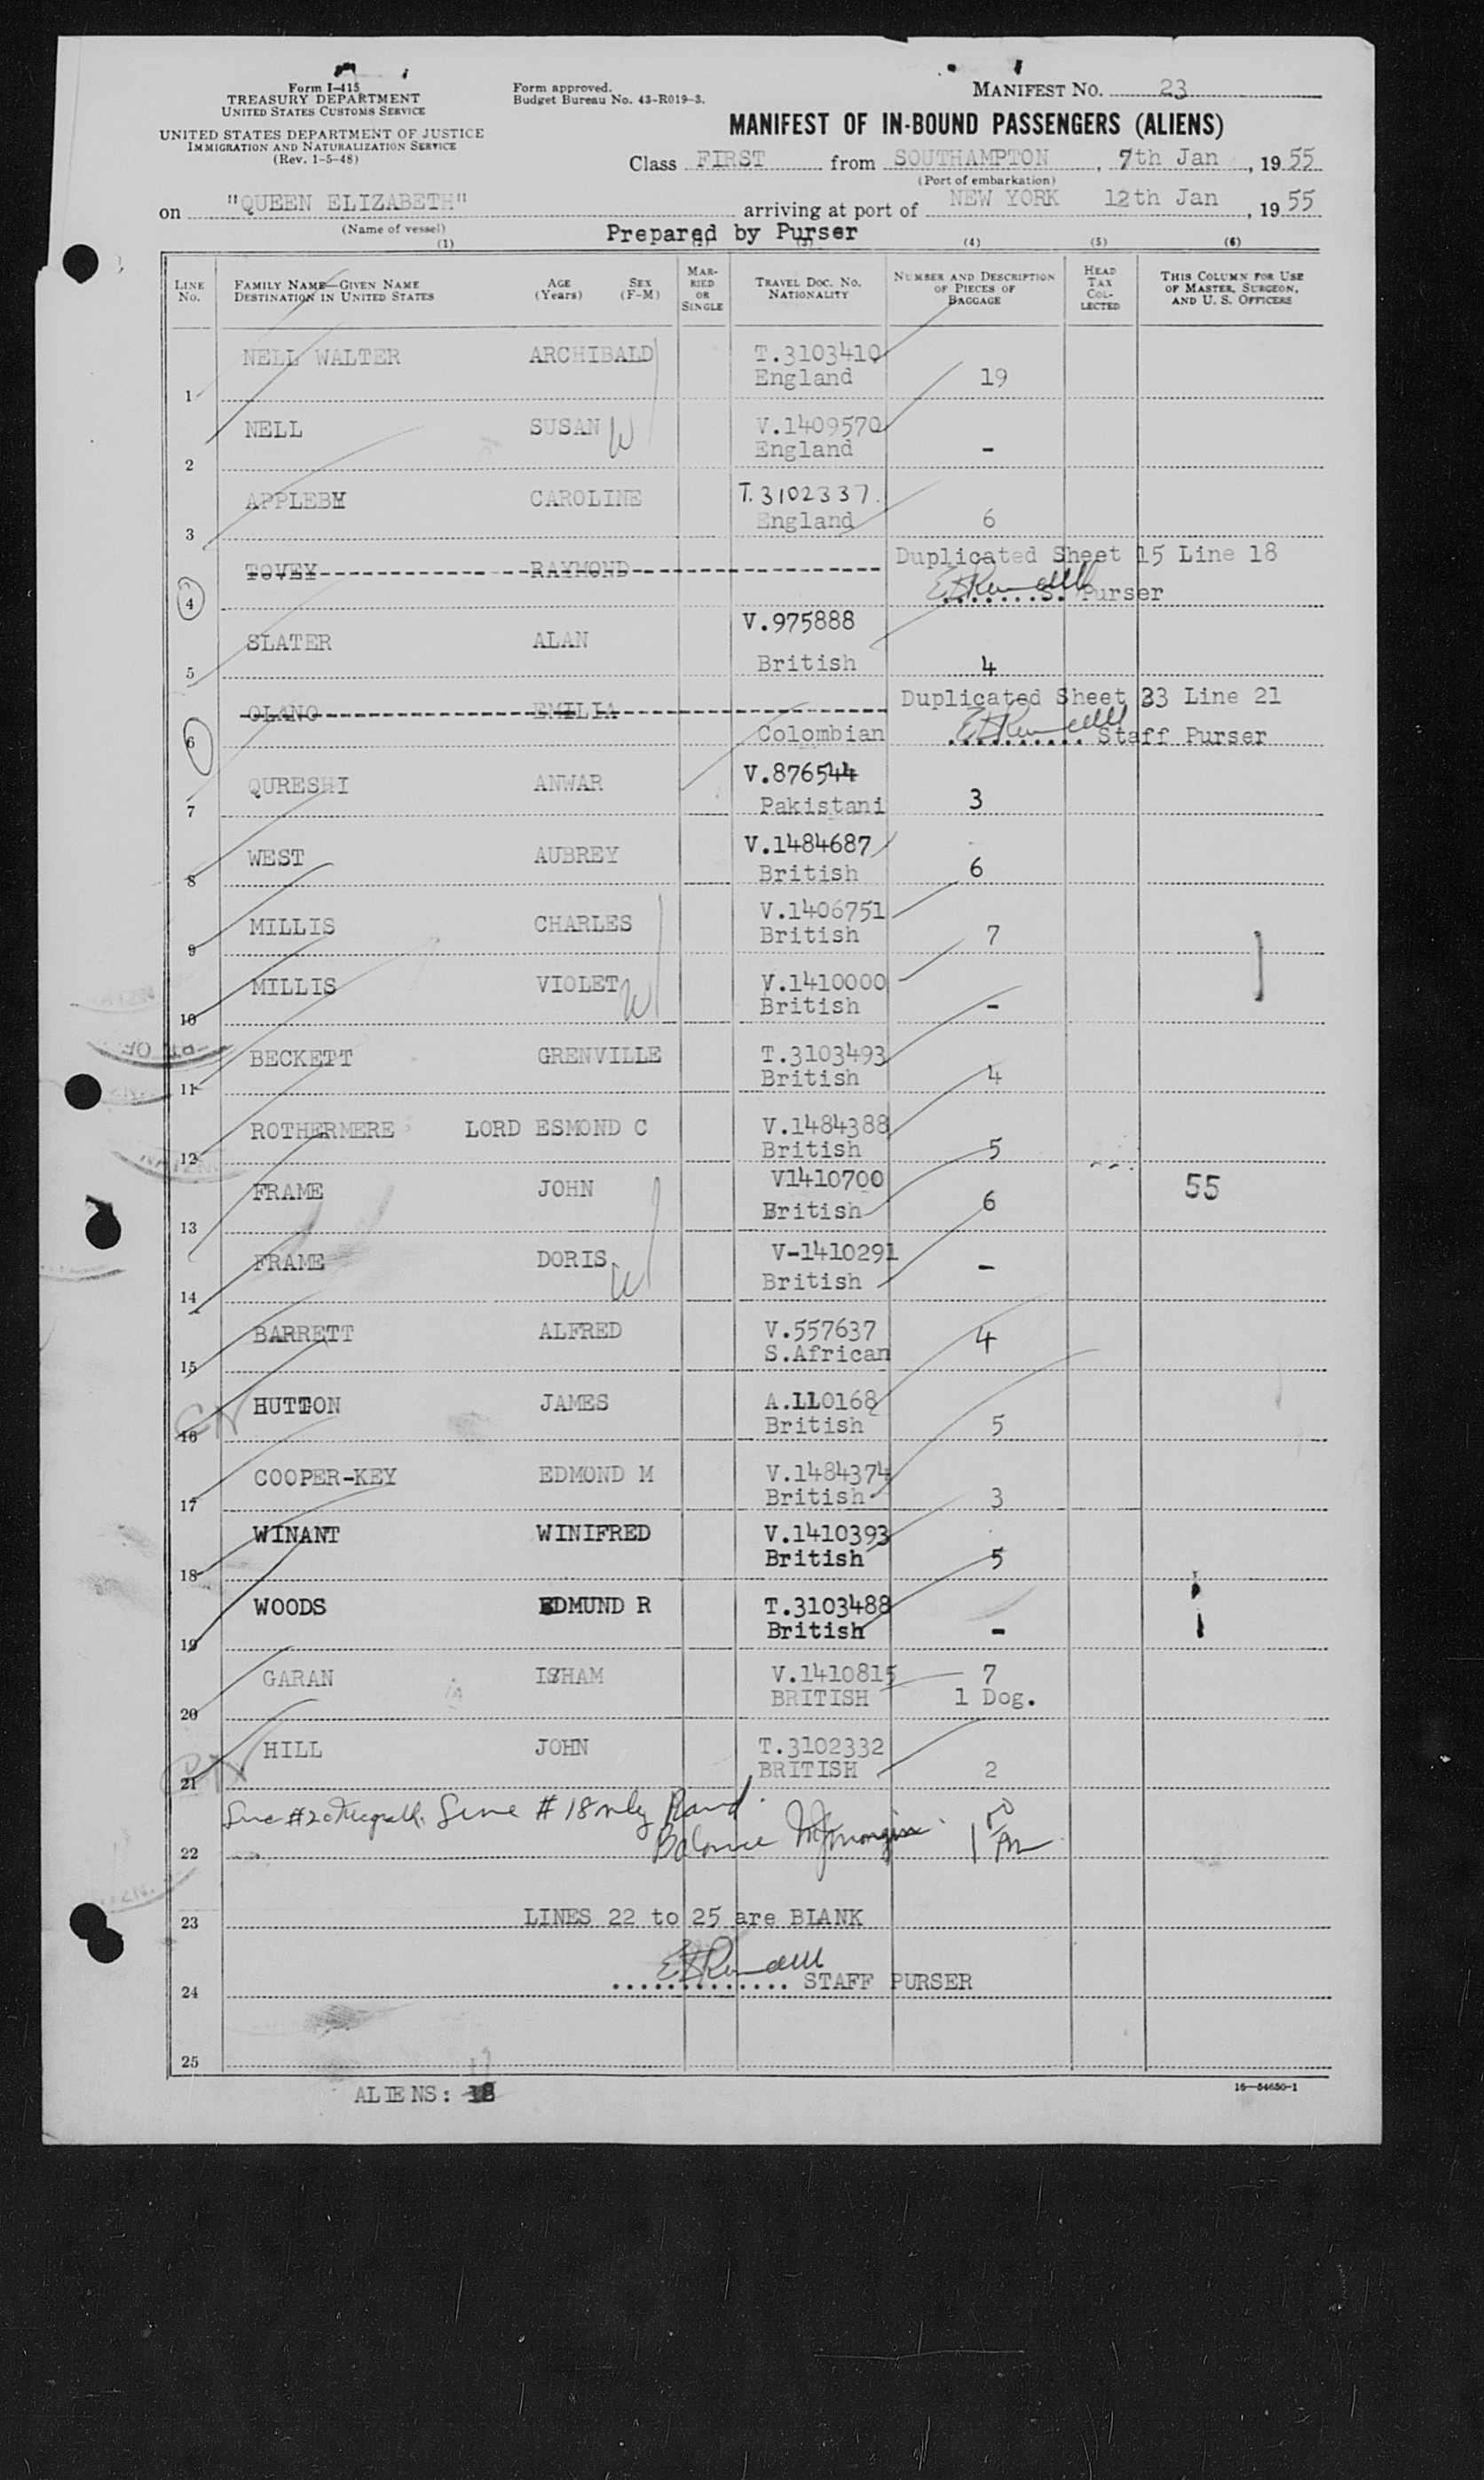 Form I-415
TREASURY DEPARTMENT
UNITED STATES CUSTOMS SERVICE
UNITED STATES DEPARTMENT OF JUSTICE
IMMIGRATION AND NATURALIZATION SERVICE
(Rev. 1-5-48)
Form approved.
Budget Bureau No. 43-R019-3.
MANIFEST NO. 23
MANIFEST OF IN-BOUND PASSENGERS (ALIENS)
Class FIRST from SOUTHAMPTON, 7th Jan, 1955
(Port of embarkation)
on "QUEEN ELIZABETH" arriving at port of NEW YORK 12th Jan, 1955
(Name of vessel)
Prepared by Purser
(1) (3) (4) (5) (6)
LINE No. FAMILY NAME—GIVEN NAME DESTINATION IN UNITED STATES AGE (Years) SEX (F-M) MARRIED OR SINGLE TRAVEL DOC. NO. NATIONALITY NUMBER AND DESCRIPTION OF PIECES OF BAGGAGE HEAD TAX COLLECTED THIS COLUMN FOR USE OF MASTER, SURGEON, AND U. S. OFFICERS
NELL WALTER ARCHIBALD T.3103410
1 England 19
NELL SUSAN W V.1409570
2 England -
APPLEBY CAROLINE T.3102337.
3 England 6
TOVEY RAYMOND Duplicated Sheet 15 Line 18
4 S. Purser
SLATER ALAN V.975888
5 British 4
OLANO EMILIA Duplicated Sheet 23 Line 21
6 Colombian Staff Purser
QURESHI ANWAR V.876544
7 Pakistani 3
WEST AUBREY V.1484687
8 British 6
MILLIS CHARLES V.1406751
9 British 7
MILLIS VIOLET W V.1410000
10 British -
BECKETT GRENVILLE T.3103493
11 British 4
ROTHERMERE LORD ESMOND C V.1484388
12 British 5
FRAME JOHN V1410700
13 British 6 55
FRAME DORIS W V-1410291
14 British -
BARRETT ALFRED V.557637
15 S.African 4
HUTTON JAMES A.LL0168
16 British 5
COOPER-KEY EDMOND M V.1484374
17 British 3
WINANT WINIFRED V.1410393
18 British 5
WOODS EDMUND R T.3103488
19 British -
GARAN ISHAM V.1410815 7
20 BRITISH 1 Dog.
HILL JOHN T.3102332
21 BRITISH 2
Line #20 Line #18 only
22 Balance
23 LINES 22 to 25 are BLANK
24 STAFF PURSER
25
ALIENS: 18
16—54650-1